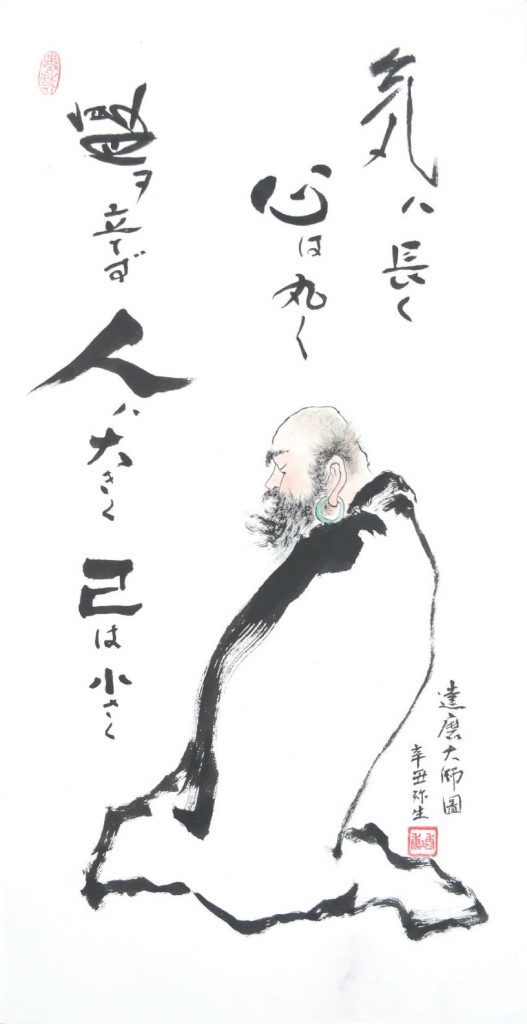 気ハ長く
心は丸く
腹ヲ立てず
人ハ大きく
己は小さく
達磨大師圖
辛丑弥生